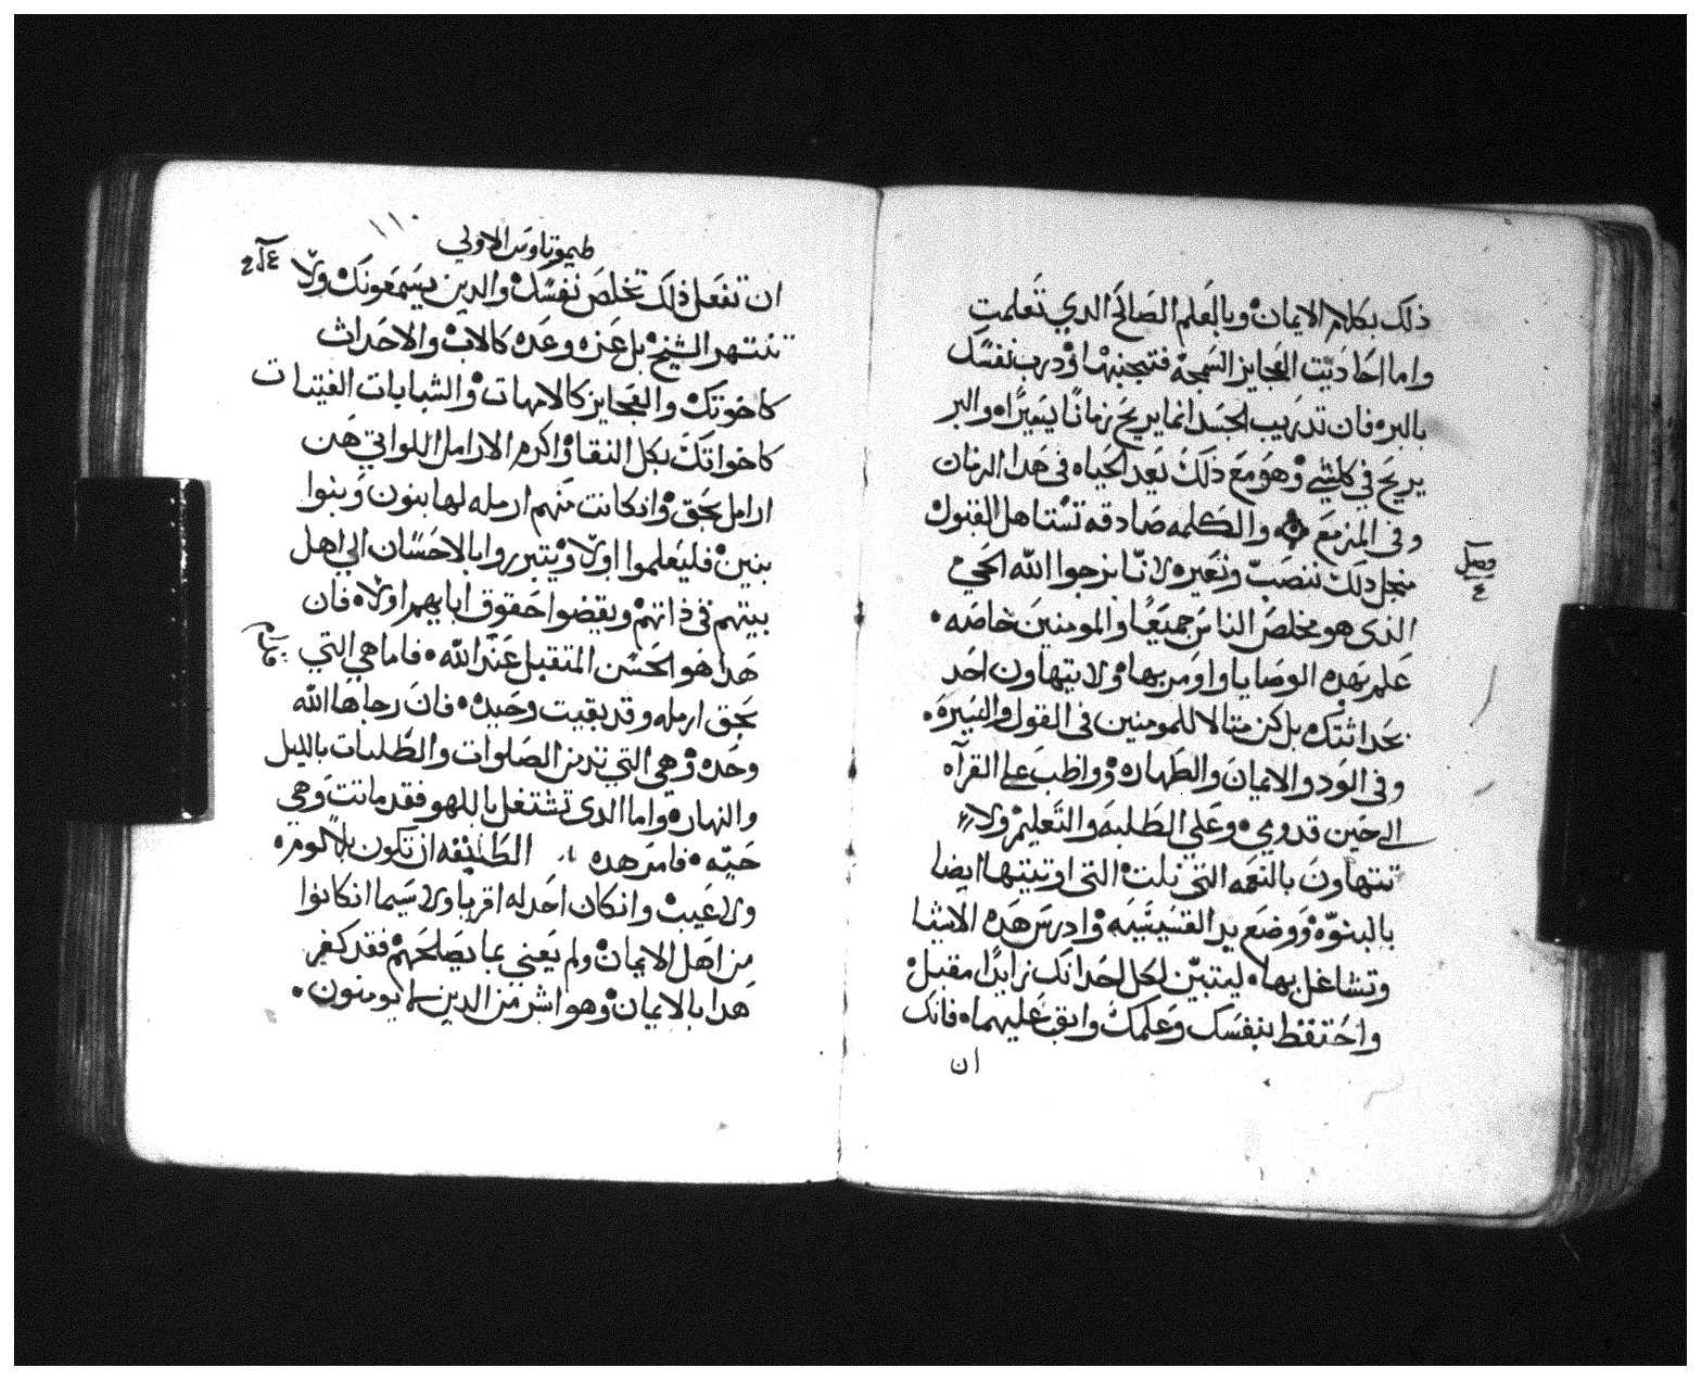 ذلك بكلام الايمان وبالعلم الصالح الدي تعلمت
واما احاديت العجايز السمجه فتجنبها ودرب نفسك
بالبر فان تدريب الجسد انما يربح زمانًا يسيرًا والبر
يربح في كلشي وهو مع ذلك يعد الحياه في هدا الزمان
وفي المزمع والكلمه صادقه تستاهل القبول
فصل
٤
منجل دلك ننصب ونعير لانّا نرجوا الله الحي
الذي هو مخلص الناس جميعًا والمومنين خاصه
علم بهده الوصايا واومر بها ولا يتهاون احد
بحداثتك بل كن متالا للمومنين في القول والسيره
وفي الود والايمان والطهاره وواظب على القرآه
الى حين قدومي وعلى الطلبه والتعليم ولا
تتهاون بالنعمه التي نلت التي اوتيتها ايضا
بالبنوّه ووضع يد القسيسيه وادرس هده الاشيا
وتشاغل بها ليتبيّن لكل احد انك زايدًا مقبل
واحتفظ بنفسك وعلمك وابق عليهما فانك
ان
١١٠
طيموتاوس الاولي
ان تفعل ذلك تخلص نفسك والدين يسمعونك ولا
تنتهر الشيخ بل عزه وعده كالاب والاحداث
كاخوتك والعجايز كالامهات والشبابات الفتيات
كاخواتك بكل النقا واكرم الارامل اللواتي هن
ارامل بحق وان كانت منهم ارمله لها بنون وبنوا
بنين فليعلموا اولا ويتبرروا بالاحسان الي اهل
بيتهم في ذاتهم ويقضوا حقوق ابايهم اولا فان
هدا هو الحسن المتقبل عند الله فاما هي التي
بحق ارمله وقد بقيت وحيده فان رجاها الله
وحده وهي التي تدمن الصلوات والطلبات بالليل
والنهار واما الدى تشتغل باللهو فقد ماتت وهي
حيّه فامر هده الطايفه ان تكون بلا لوم
ولا عيب وان كان احد له اقربا ولا سيما ان كانوا
من اهل الايمان ولم يعني بما يصلحهم فقد كفر
هدا بالايمان وهو اشر من الدين لا يومنون